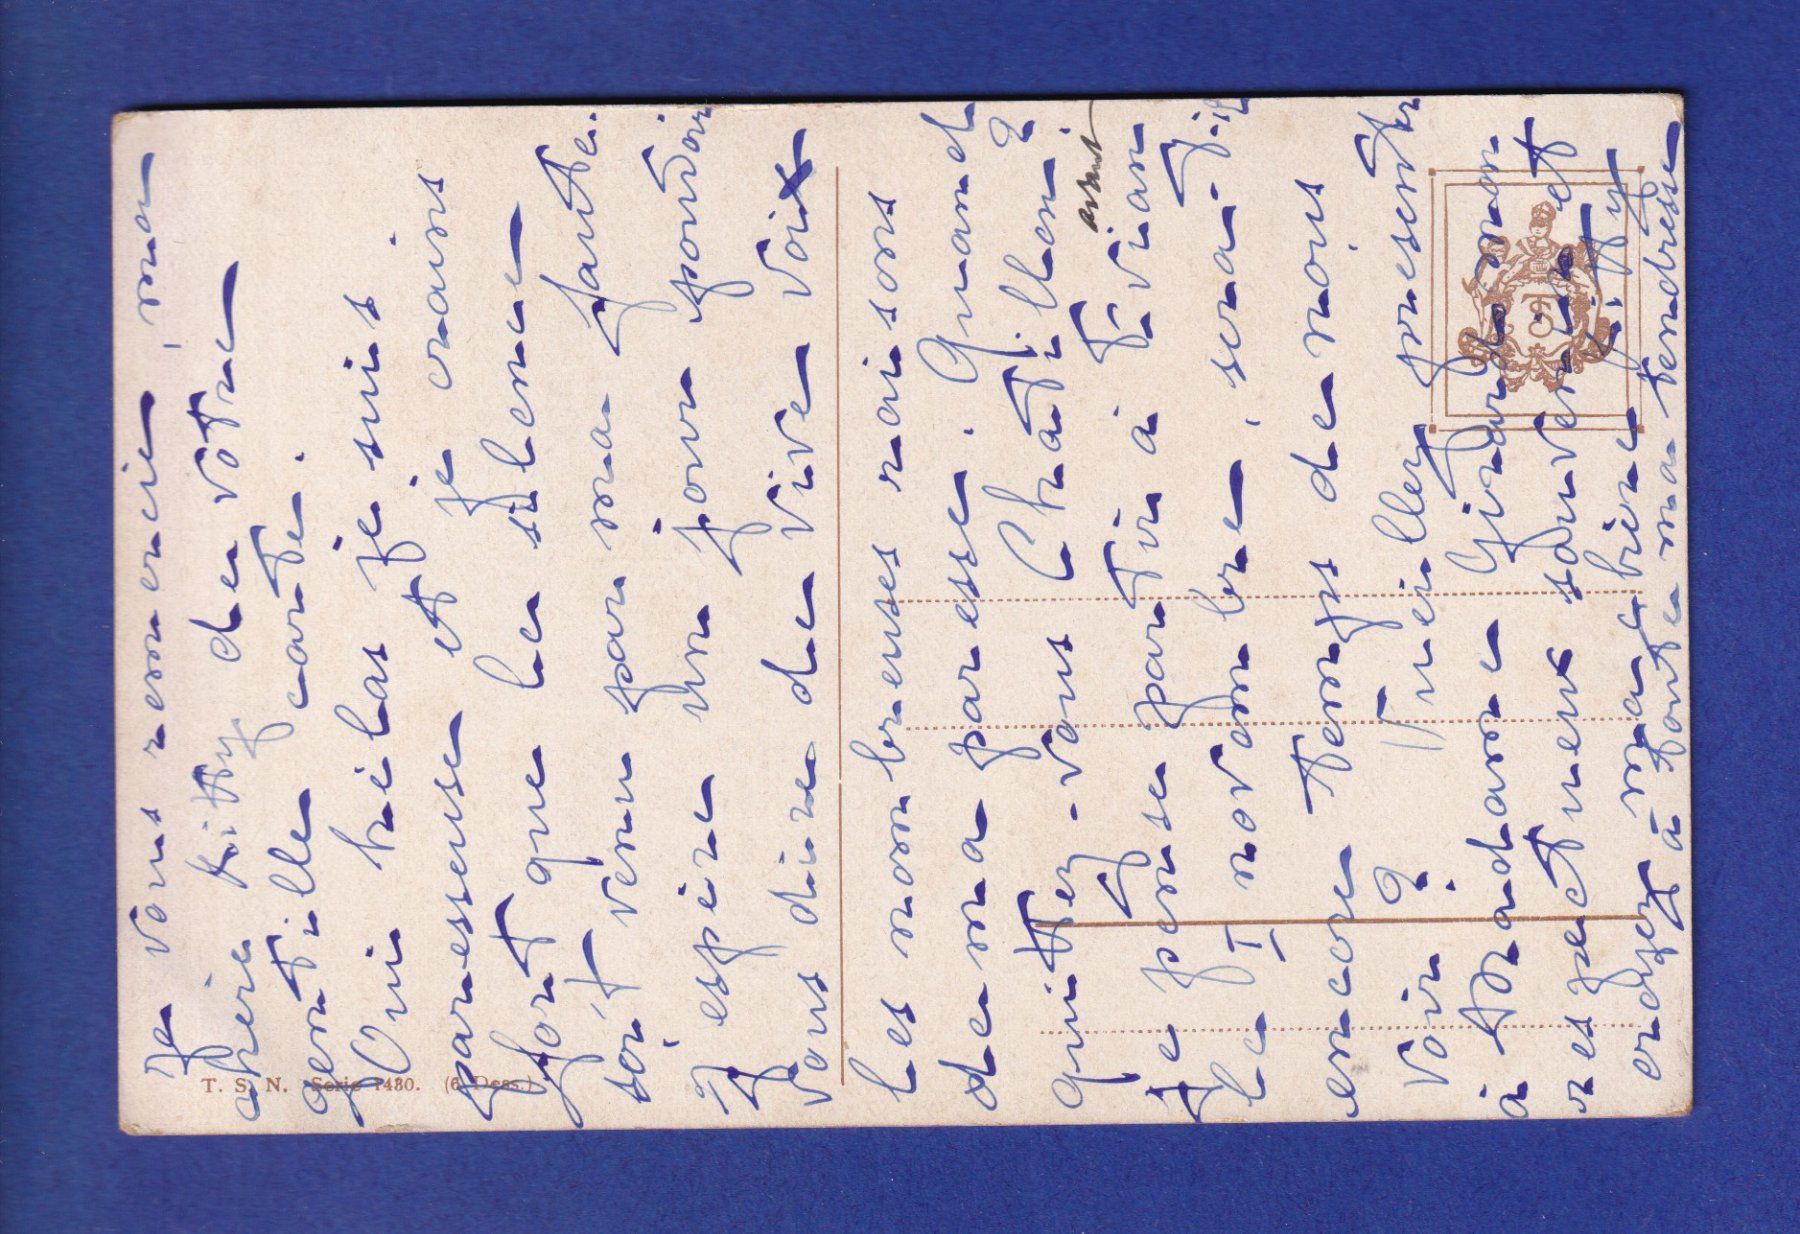 Je vous remercie, ma
chérie Kitty de votre
gentille carte.
Oui hélas je suis
paresseuse et je crains
fort que le silence
soit venu par ma faute.
J'espère un jour pouvoir
vous dire de vive voix
les nombreuses raisons
de ma paresse. Quand
quittez-vous Châtillon?
Je pense partir à Evian avant
le I novembre, serait-il
encore temps de nous
voir? Veuillez présenter
à Madame Girard mon
respectueux souvenir et
croyez ma bien
à toute ma tendresse
T. S. N. Serie 1430. (6 Dess.)